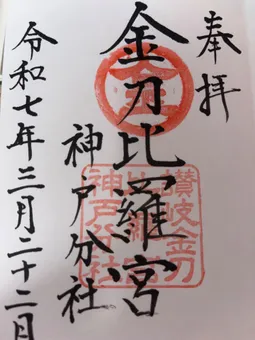 奉拝
金刀比羅宮
神戸分社
令和七年三月二十二日
讃岐金刀
比羅宮
神戸分社